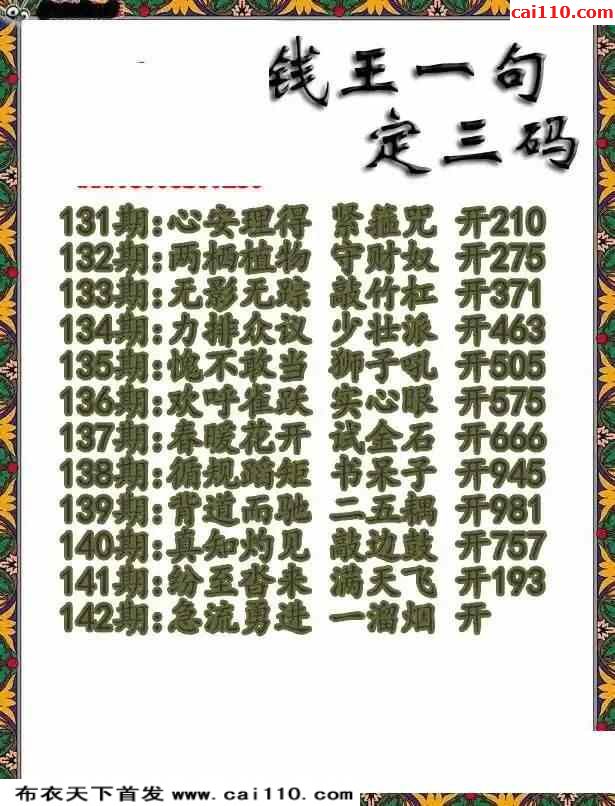 cai110.com
钱王一句
定三码
131期:心安理得 紧箍咒 开210
132期:两栖植物 守财奴 开275
133期:无影无踪 敲竹杠 开371
134期:力排众议 少壮派 开463
135期:愧不敢当 狮子吼 开505
136期:欢呼雀跃 实心眼 开575
137期:春暖花开 试金石 开666
138期:循规蹈矩 书呆子 开945
139期:背道而驰 二五耦 开981
140期:真知灼见 敲边鼓 开757
141期:纷至沓来 满天飞 开193
142期:急流勇进 一溜烟 开
布衣天下首发 www.cai110.com